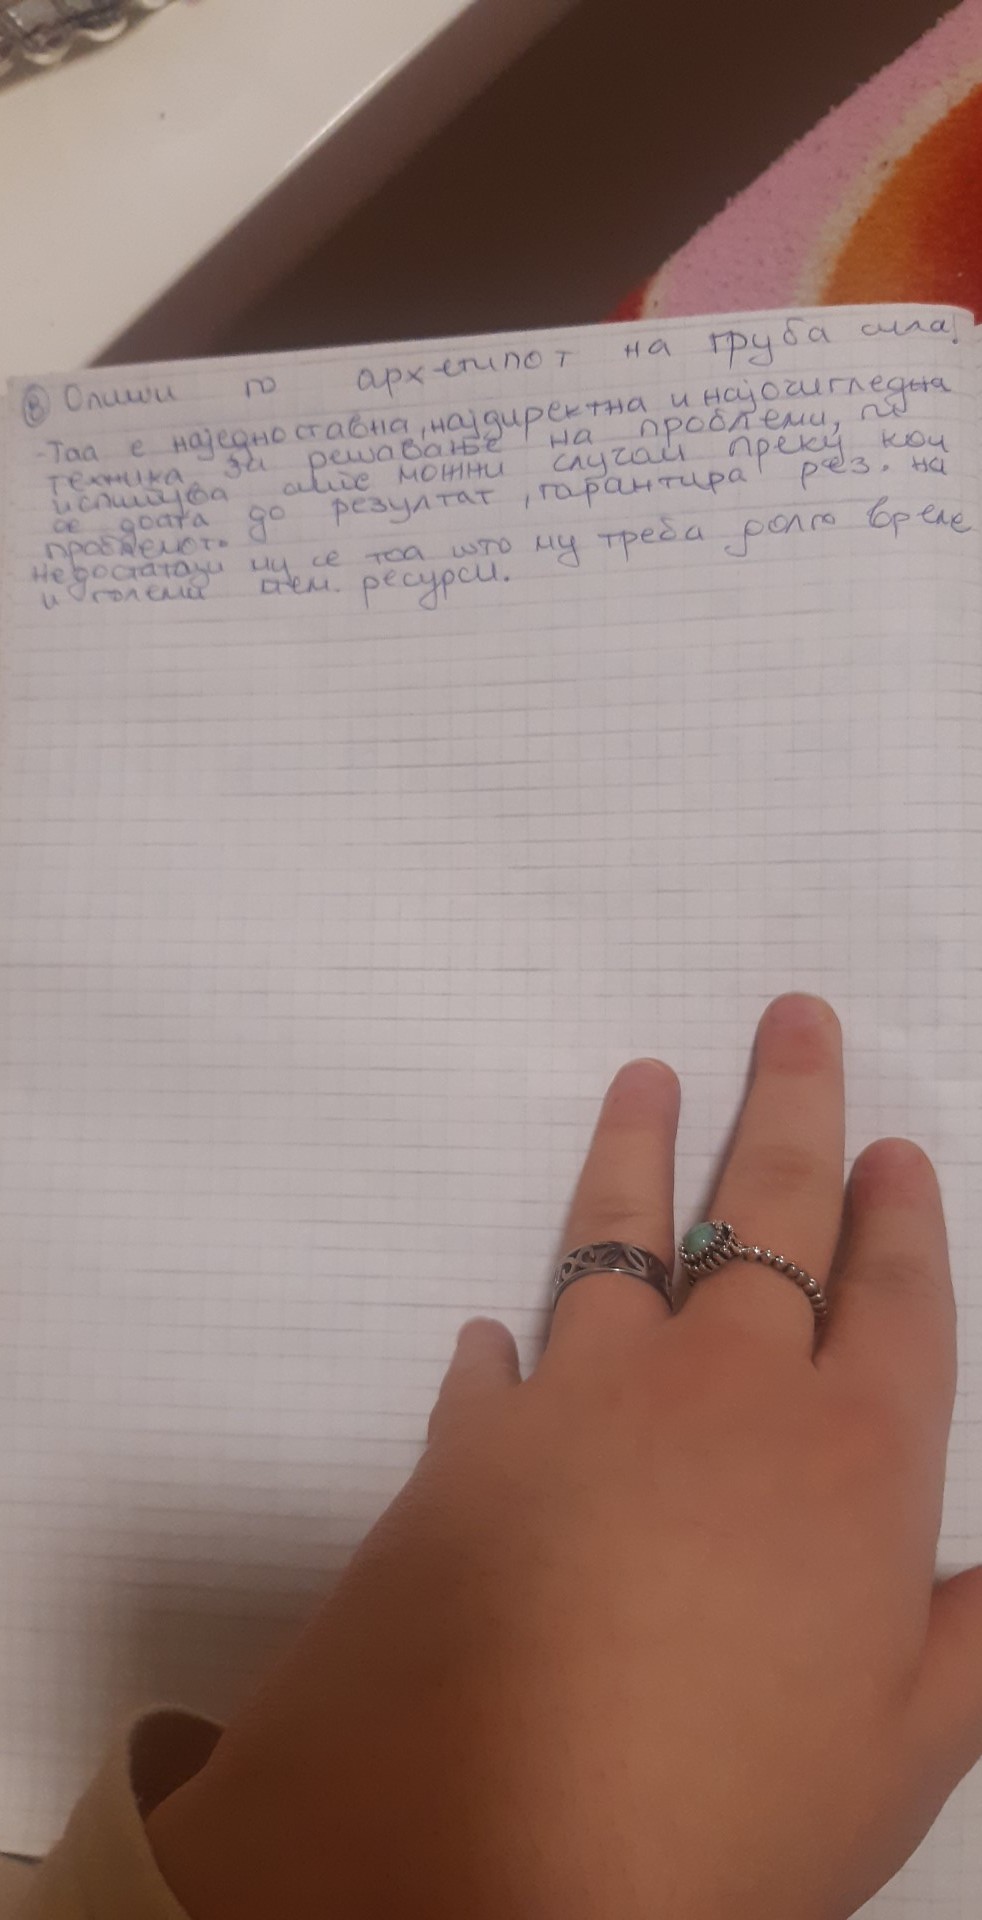 ⑧ Опиши го архетипот на груба сила!
-Таа е наједноставна, најдиректна и најочигледна
техника за решавање на проблеми, ги
испишува сите можни случаи преку кои
се доаѓа до резултат, гарантира рез. на
проблемот.
Недостатоци му се тоа што му треба долго време
и големи мем. ресурси.